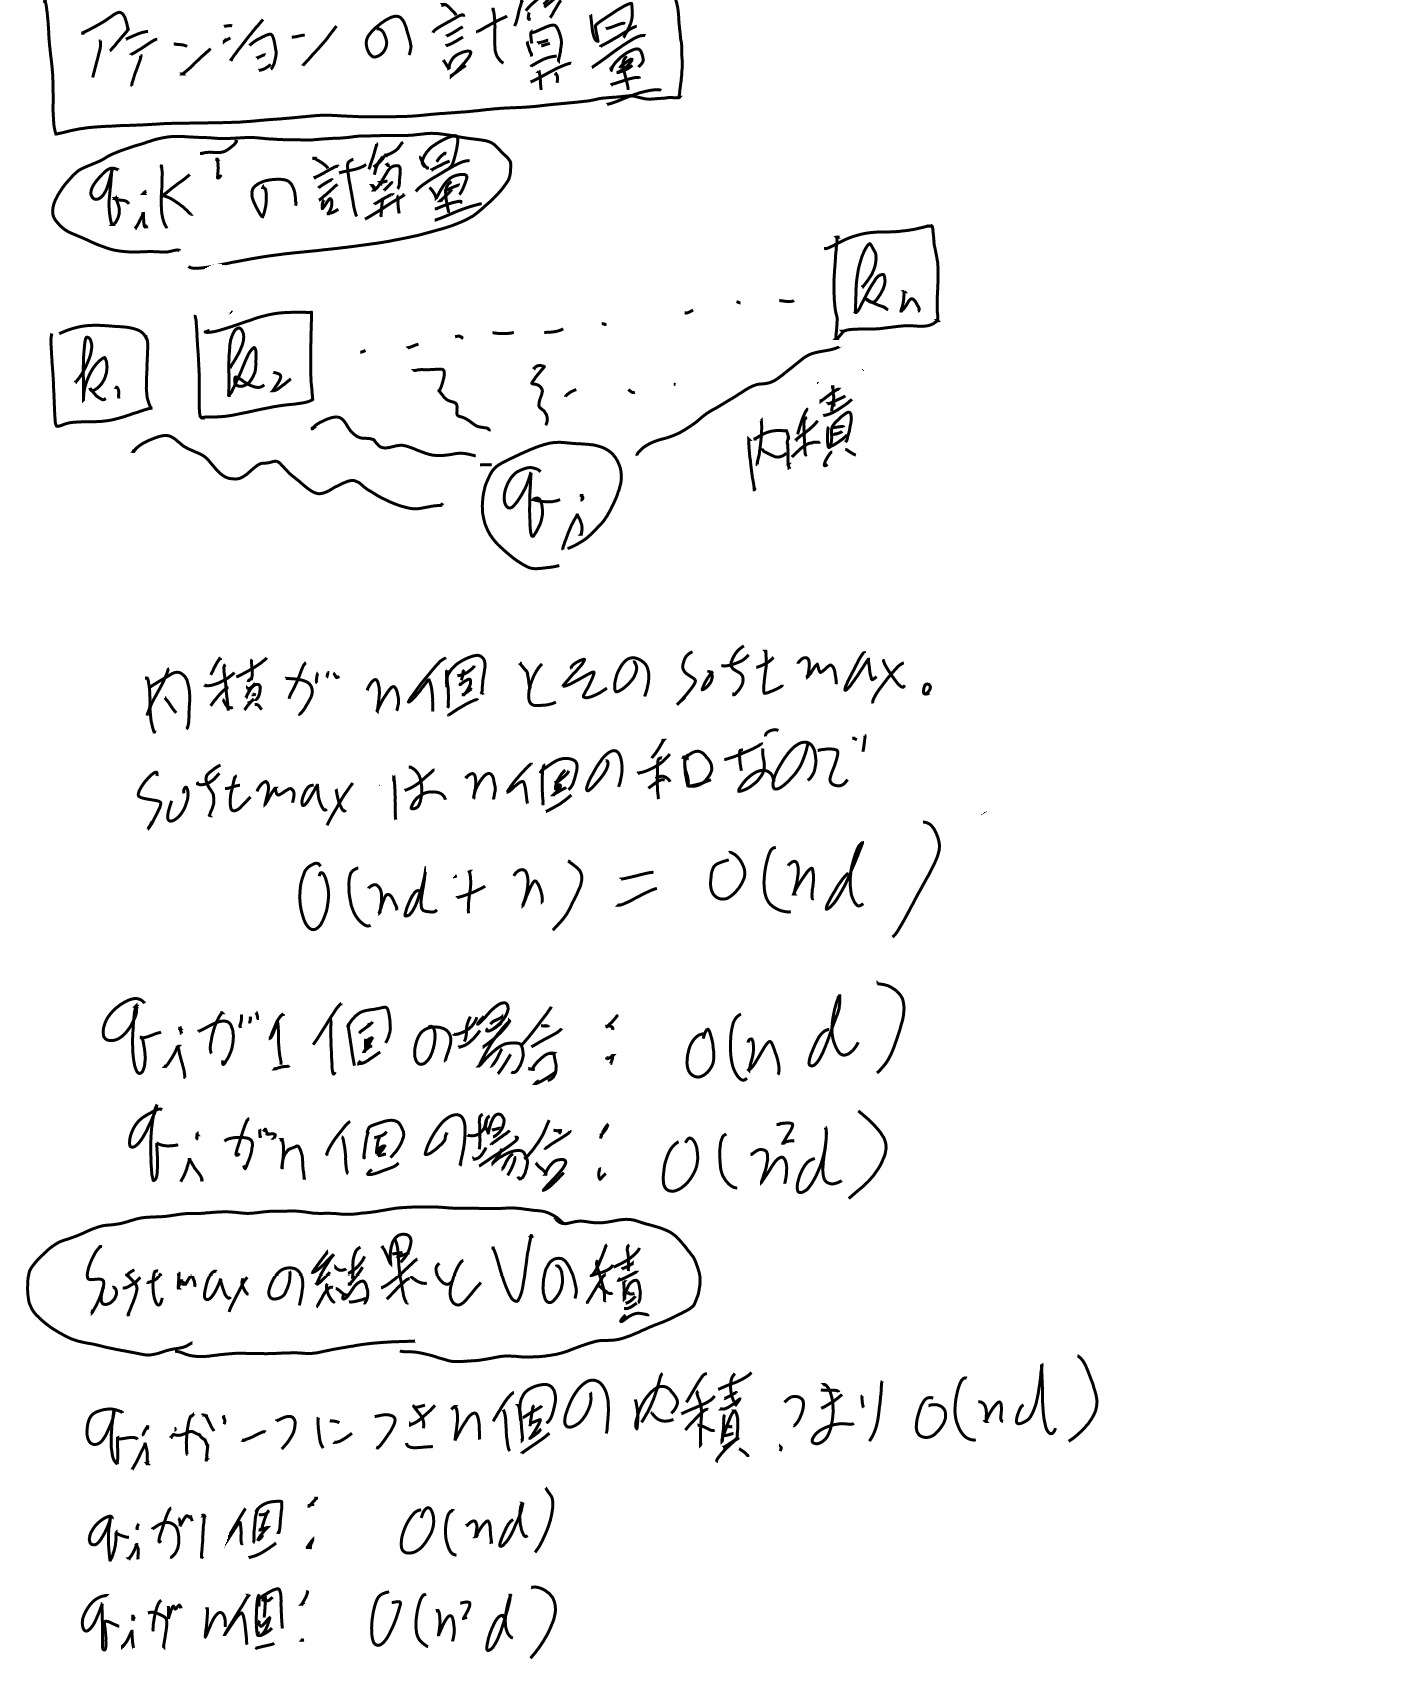 アテンションの計算量
qiK^Tの計算量
k1 k2 ・・・・・・ kn
内積
qi
内積がn個とそのsoftmax。
softmaxはn個の和なので
O(nd+n)=O(nd)
qiが1個の場合:O(nd)
qiがn個の場合:O(n²d)
softmaxの結果とVの積
qiが一つにつきn個の内積.つまりO(nd)
qiが1個: O(nd)
qiがn個: O(n²d)